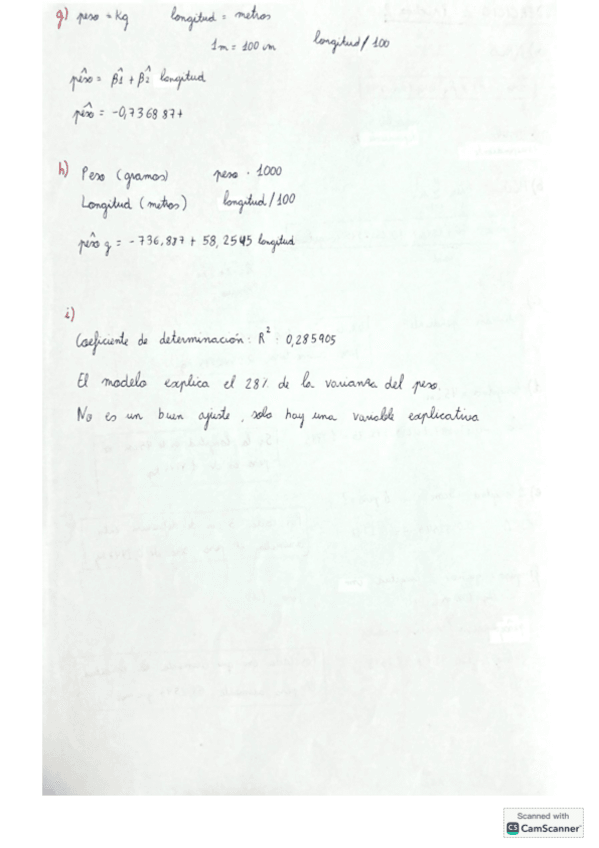 g) peso = Kg longitud = metros
1m = 100 cm longitud / 100
pêso = β̂1 + β̂2 longitud
pêso = -0,736887+
h) Peso (gramos) peso · 1000
Longitud (metros) longitud / 100
pêso g = -736,887 + 58,2545 longitud
i)
Coeficiente de determinación: R²: 0,285905
El modelo explica el 28% de la varianza del peso.
No es un buen ajuste, solo hay una variable explicativa
Scanned with
CS CamScanner